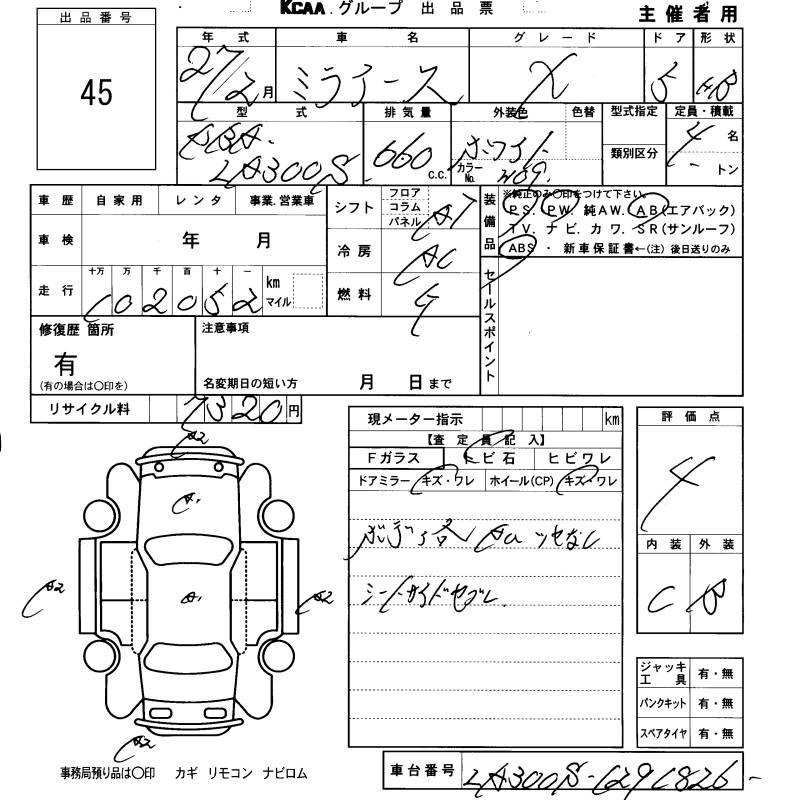 出品番号
45
KCAA.グループ 出品票
主催者用
年式 車名 グレード ドア 形状
27/2月 ミライース X 5 HB
型式 排気量 外装色 色替 型式指定 定員・積載
DBA- LA300S 660 c.c. ホワイト カラーNo. W09 類別区分 4名
トン
車歴 自家用 レンタ 事業.営業車
車検 年 月
走行 十万 万 千 百 十 一 km マイル
102052
シフト フロア コラム パネル AT
冷房 AC
燃料 G
装備品
※純正のみ○印をつけて下さい。
PS. PW. 純AW. AB(エアバック)
TV. ナビ. カワ. SR(サンルーフ)
ABS ・ 新車保証書←(注) 後日送りのみ
セールスポイント
修復歴 箇所
有
(有の場合は○印を)
注意事項
名変期日の短い方 月 日まで
リサイクル料 7320円
現メーター指示 km
【査定員記入】
Fガラス トビ石 ヒビワレ
ドアミラー キズ・ワレ ホイール(CP) キズ・ワレ
シートサイドセブレ
評価点
4
内装 外装
C B
ジャッキ工具 有・無
パンクキット 有・無
スペアタイヤ 有・無
A2
A1
A2
A1
A2
A2
事務局預り品は○印 カギ リモコン ナビロム
車台番号 LA300S-1291826